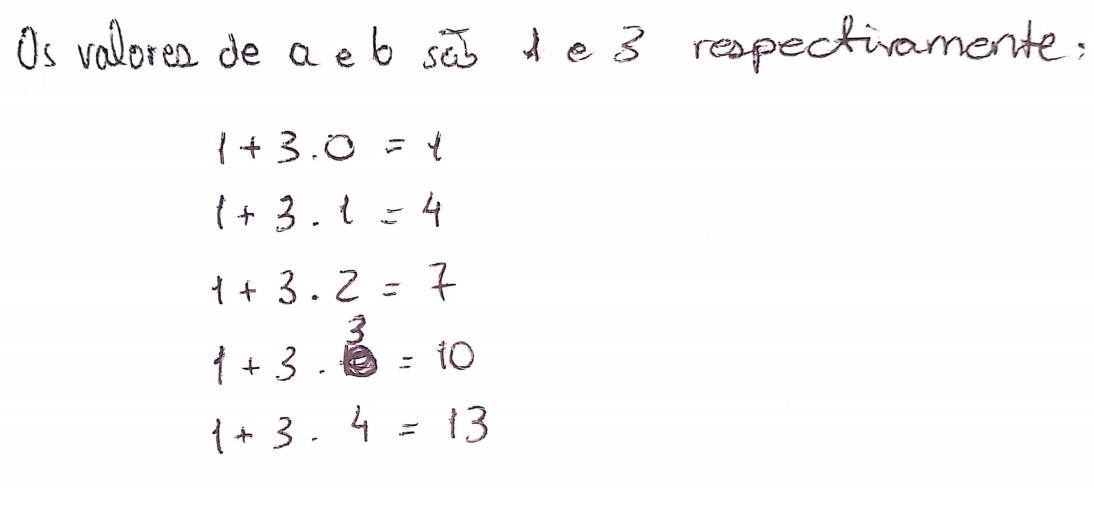 Os valores de a e b são 1 e 3 respectivamente:
1 + 3 . 0 = 1
1 + 3 . 1 = 4
1 + 3 . 2 = 7
1 + 3 . 3 = 10
1 + 3 . 4 = 13